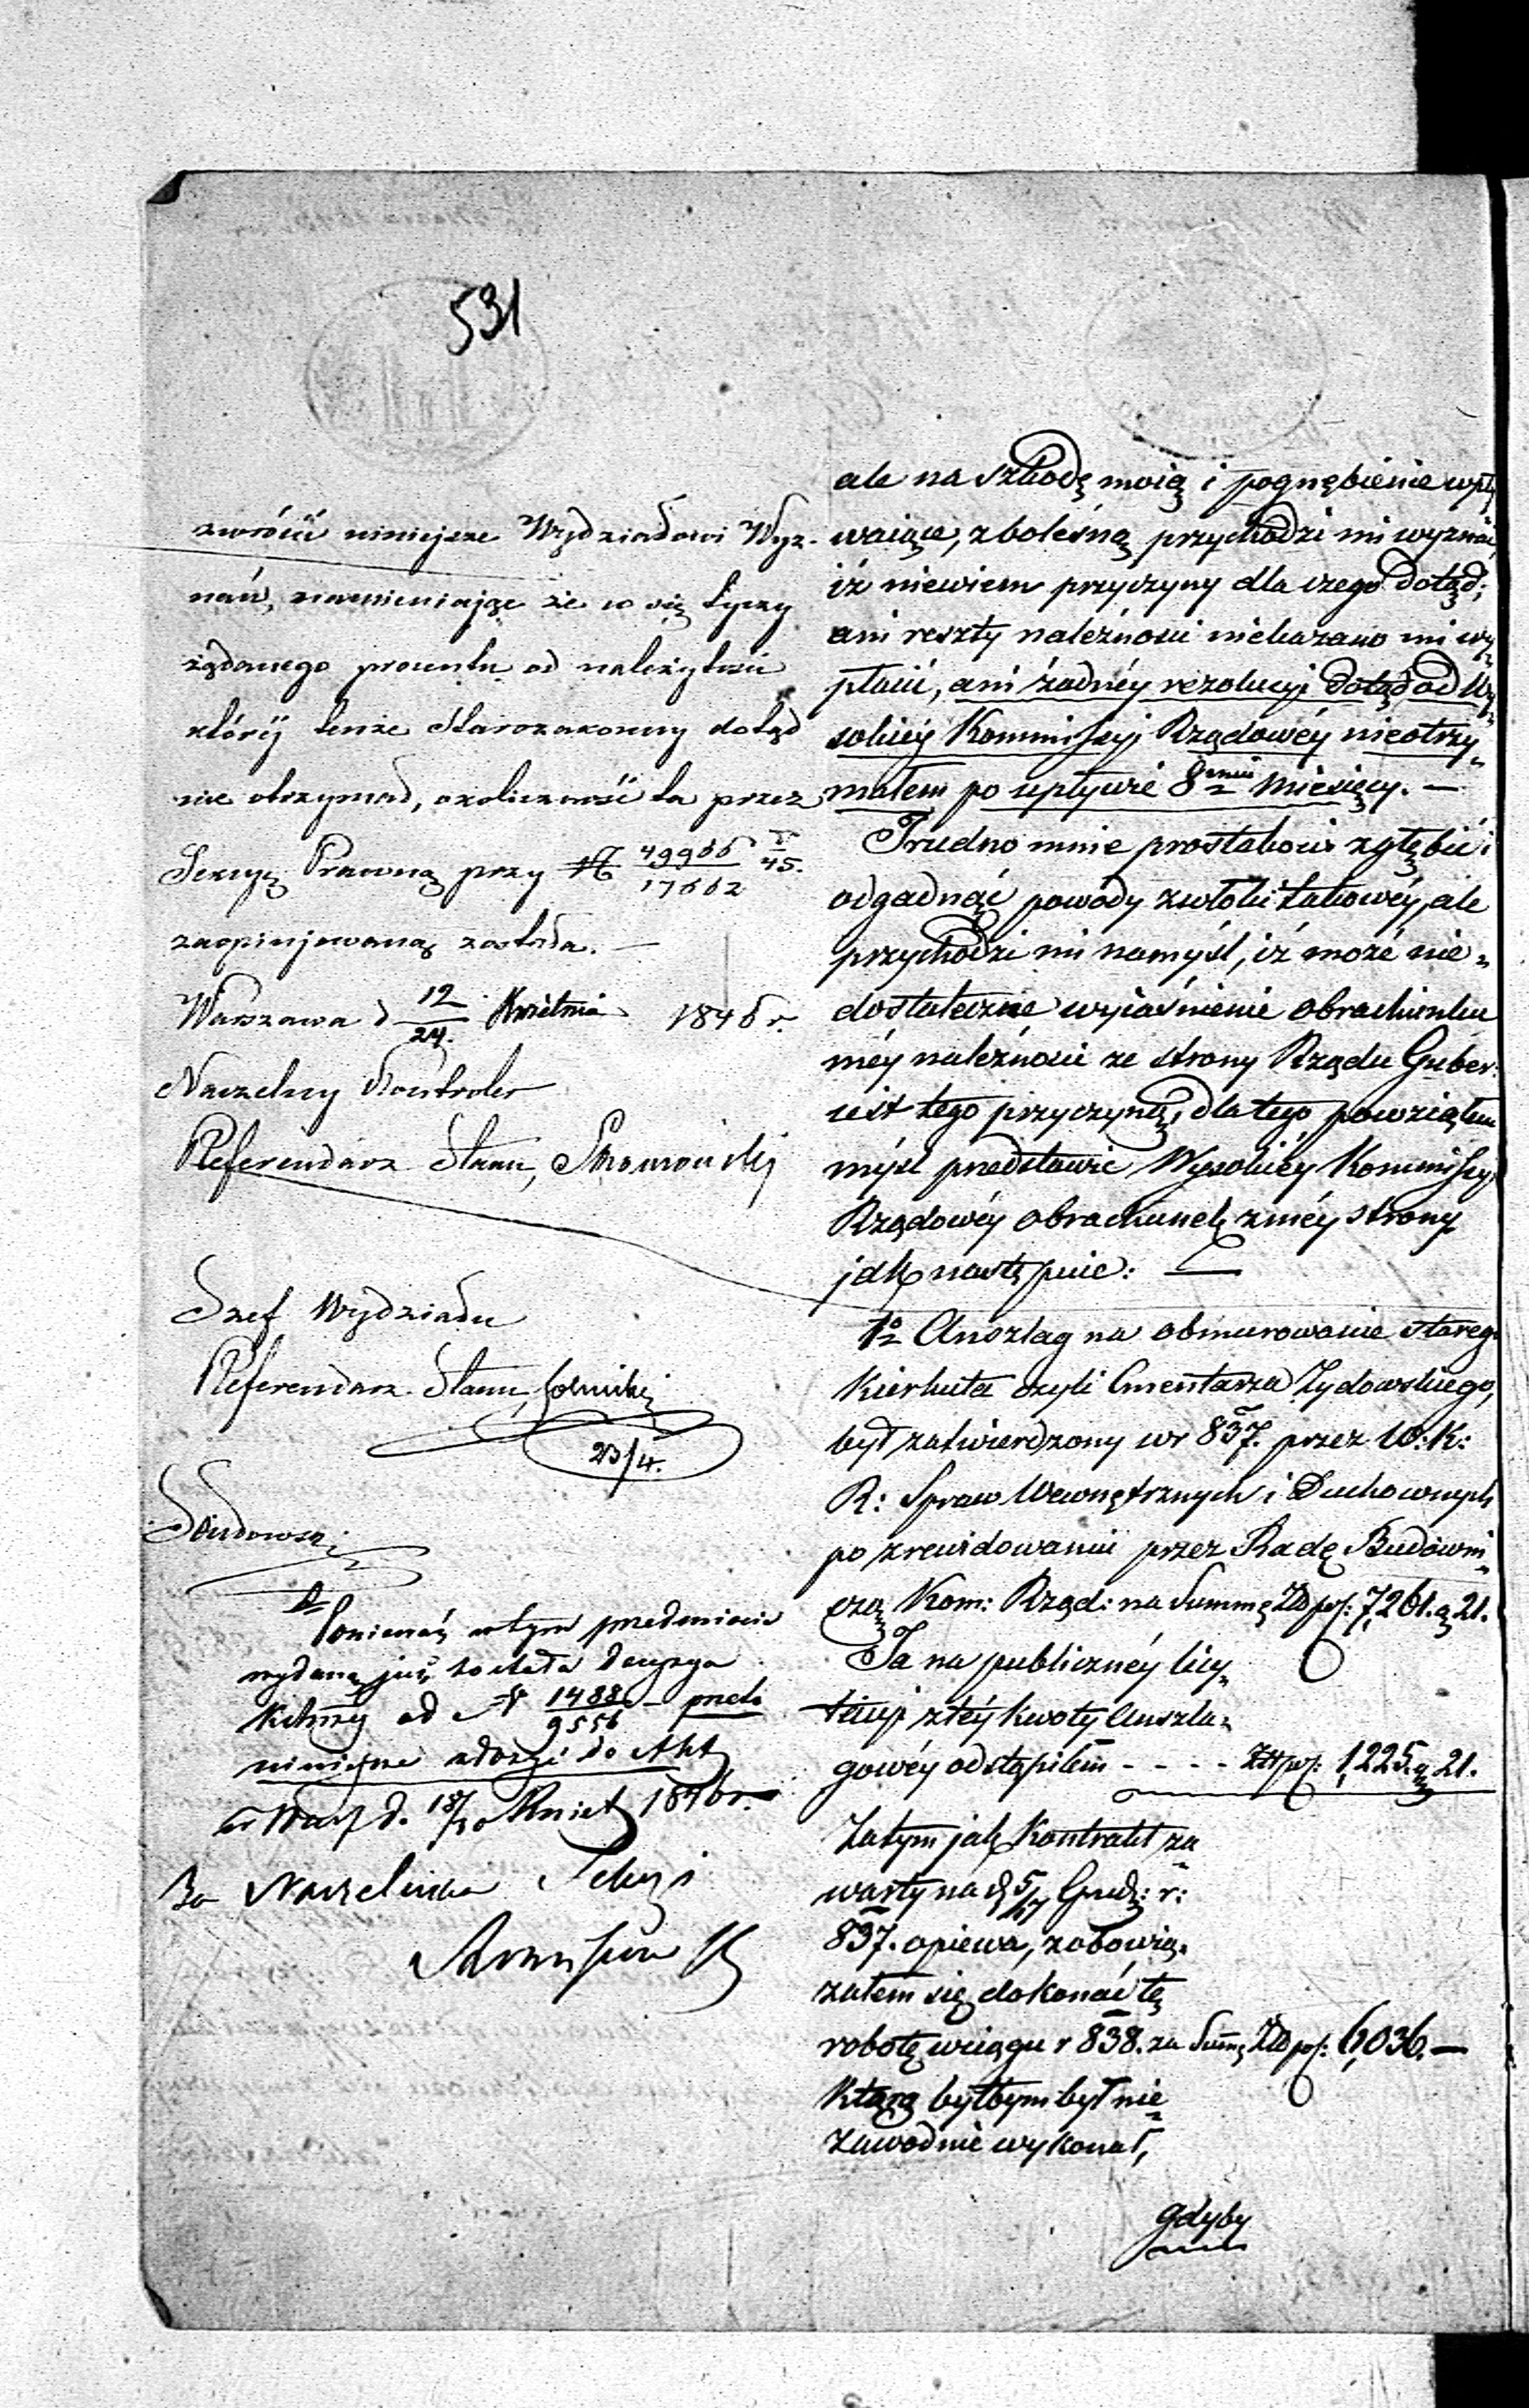 531
zwrócić niniejsze Wydziałowi Wyz-
nań, nadmieniając że co się tyczy
żądanego procentu od należytości
której tenże Starozakonny dotąd
nie otrzymał, okoliczność ta przez
Sekcyę Prawną przy N 49966/17662 45.
zaopiniowaną została. —
Warszawa d 12/24. Kwietnia 1846 r.
Naczelny Kontroler
Referendarz Stanu,
Szef Wydziału
Referendarz Stanu,
23/4.
Ponieważ w tym przedmiocie
wydaną już została decyzya
od N 1488/9556 – przeto
niniejsze złożyć do Akt
w Warsz d. 18/30 Kwiet 1846 r.
Za Naczelnika Sekcyi
ale na szkodę moią i pognębienie wpły
waiące, z boleśną przychodzi mi wyznać,
iż niewiem przyczyny dla czego dotąd;
ani reszty należności niekazano mi wy„
płacić, ani żadnéy rezolucyi dotąd od Wy„
sokiéy Kommissyi Rządowéy nieotrzy„
małem po upływie 8miu miesięcy. —
Trudno mnie prostakowi zgłębić i
odgadnąć powody zwłoki takowéy, ale
przychodzi mi namyśl, iż może nie„
dostateczne wyiaśnienie obrachunku
méy należności ze strony Rządu Guber:
iest tego przyczyną, dla tego powziąłem
myśl przedstawić Wysokiéy Kommissyi
Rządowéy obrachunek z méy strony
jak następuie: —
1o Anszlag na obmurowanie starego
Kierkuta czyli Cmentarza Żydowskiego,
był zatwierdzony w r 837. przez W: K:
R: Spraw Wewnętrznych i Duchownych
po zrewidowaniu przez Radę Budowni„
czą Kom: Rząd: na Summę Złpol: 7,261. g 21.
Ja na publicznéy licy„
tacyi z téy kwoty Anszla„
gowéy odstąpiłem - - - - Złpol: 1,225. g 21.
Zatym jak Kontrakt za„
warty na d 5/17 Grud: r:
837. opiewa, zobowią„
załem się dokonać tę
robotę wciągu r 838. za Sumę Złpol: 6,036. —
Którą byłbym był nie„
zawodnie wykonał,
gdyby